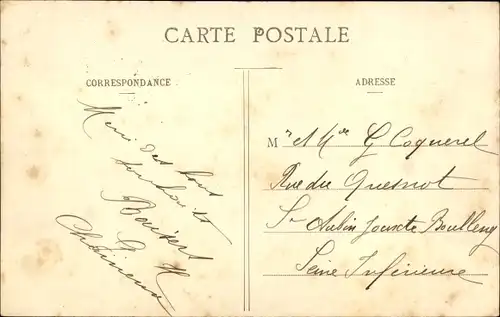 CARTE POSTALE
CORRESPONDANCE
Merci des bons
souhaits
Baisers
G H
ADRESSE
Mr et Mde G Coquerel
Rue du Quesnot
St Aubin Jouxte Boulleng
Seine Inférieure